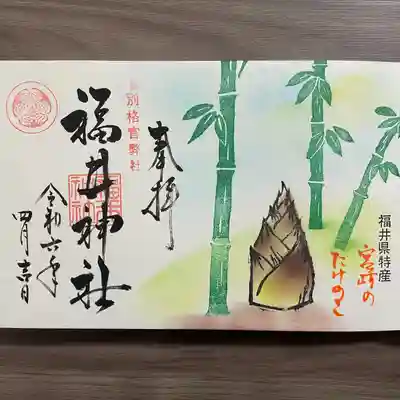 福井県特産
宮崎の
たけのこ
奉拝
別格官幣社
福井神社
令和六年
四月吉日